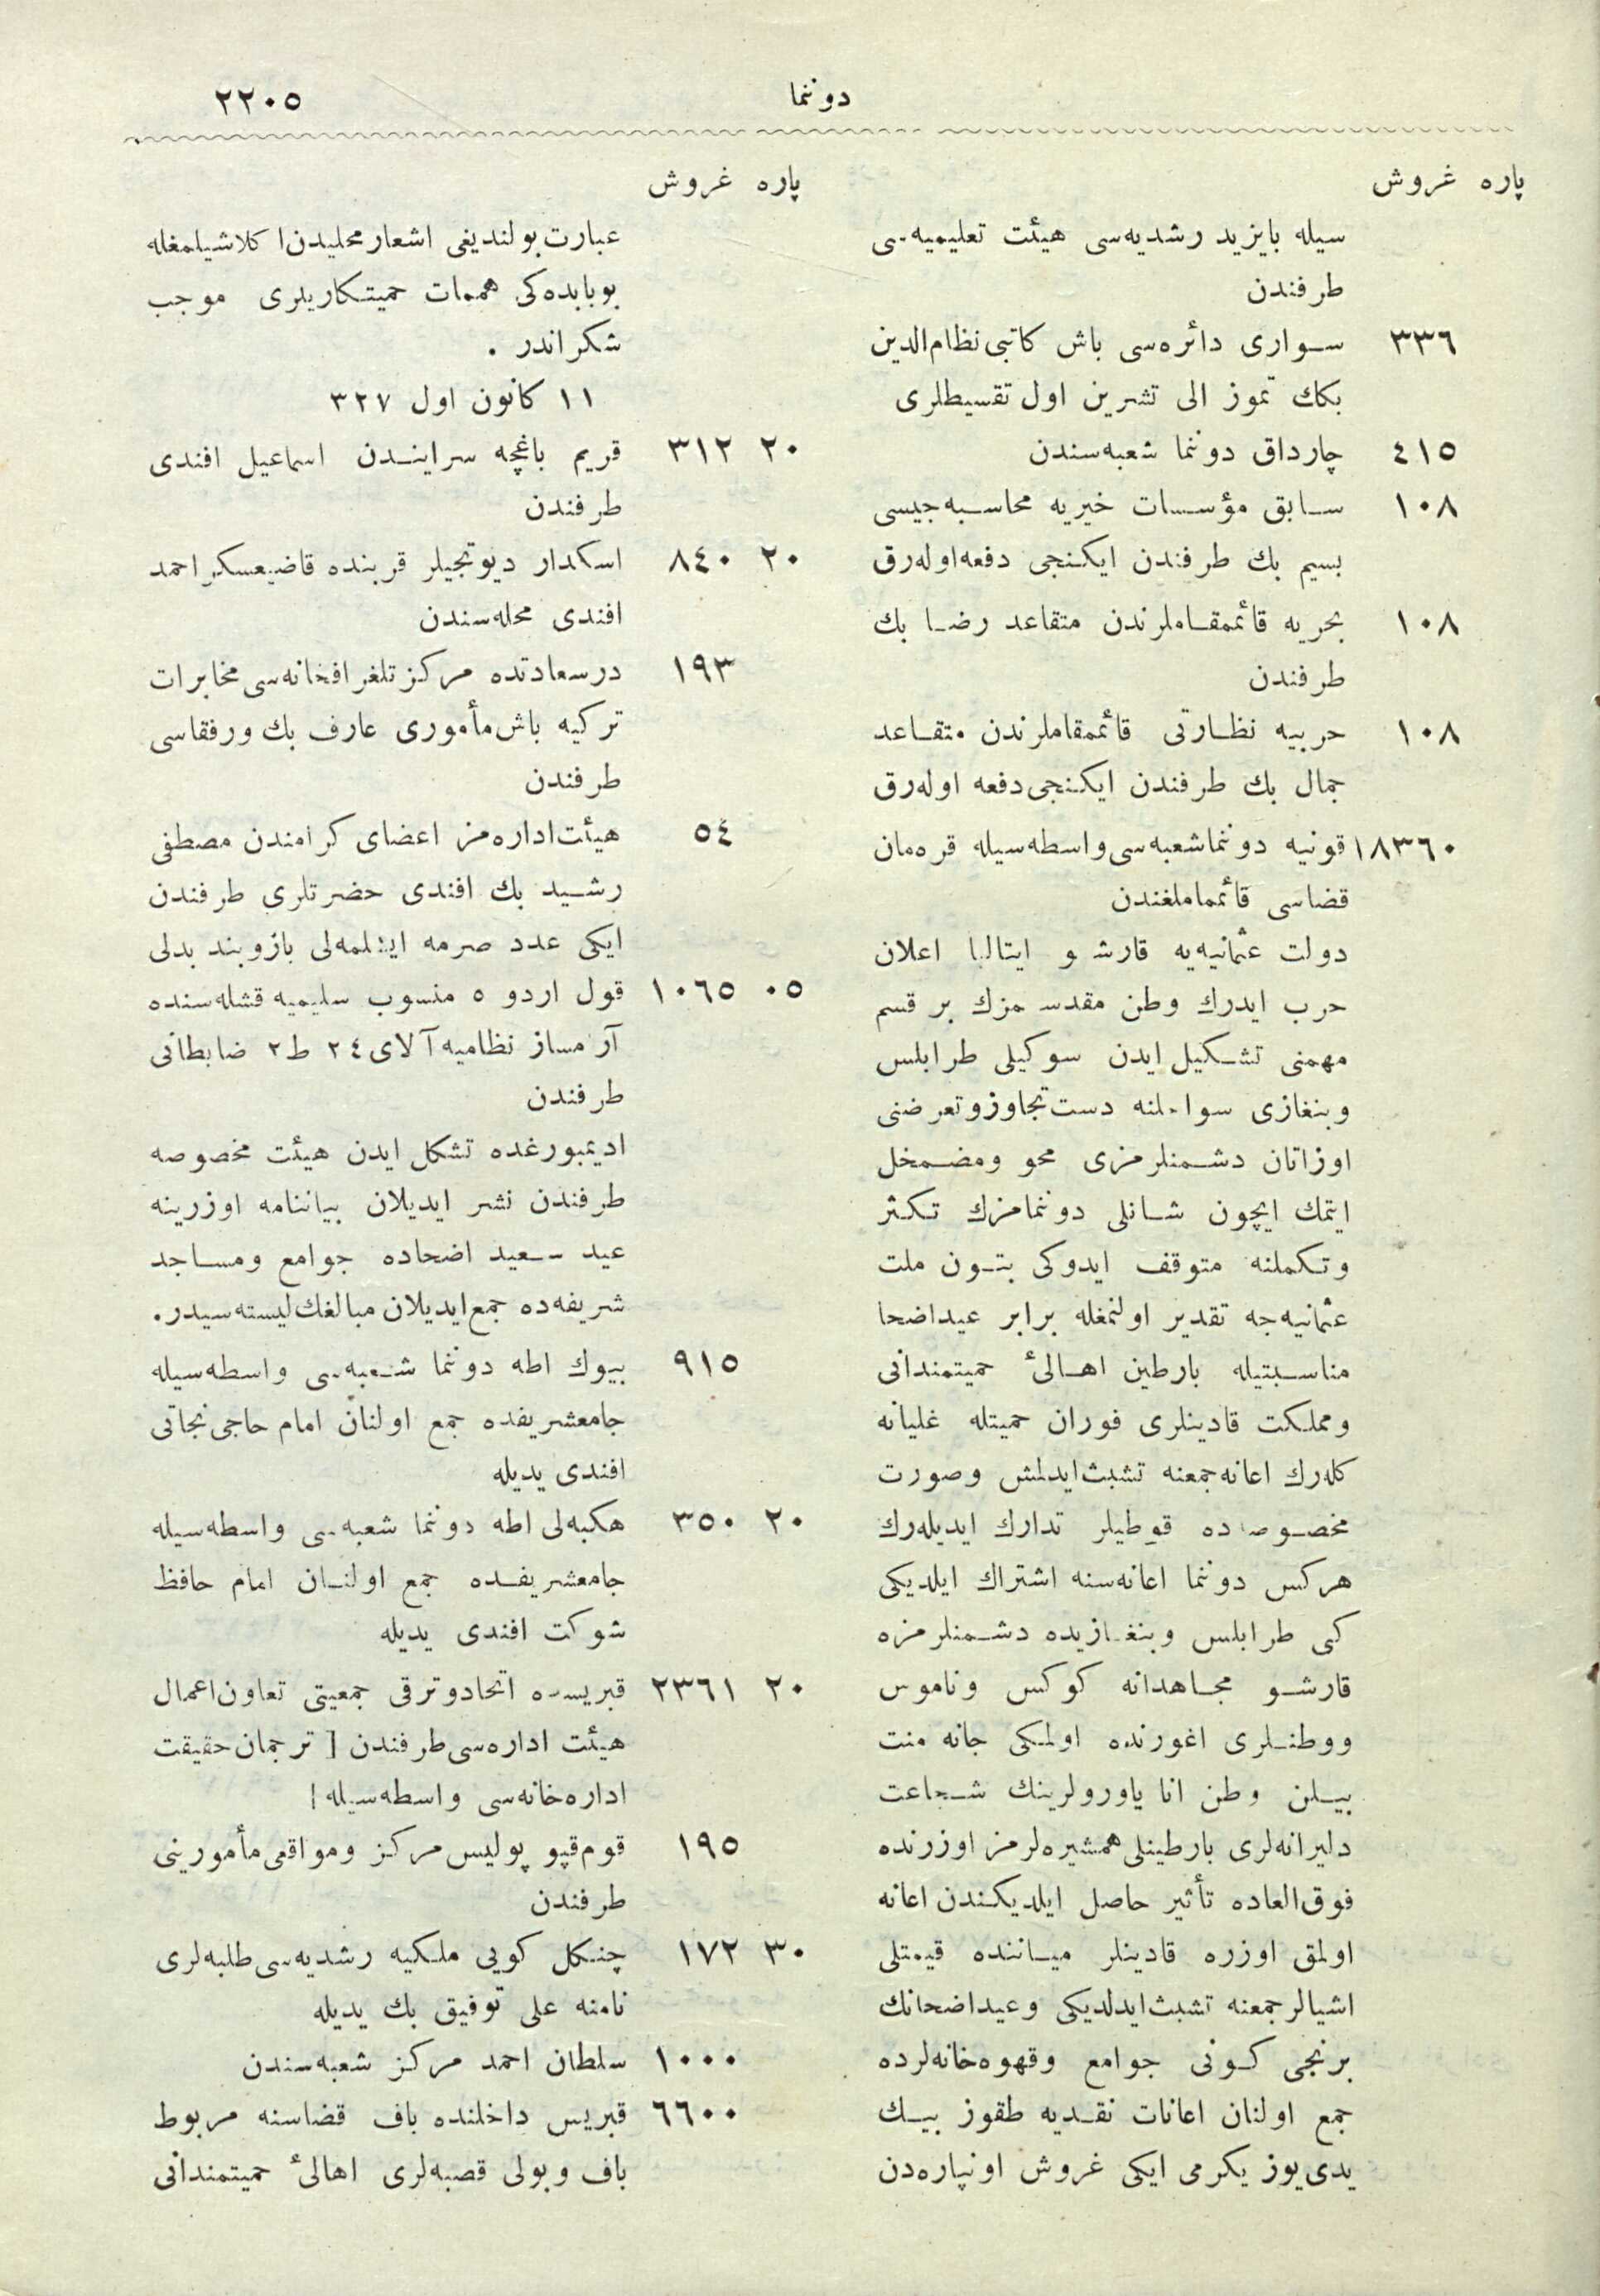 دوننما
٢٢٠٥
پاره غروش
سیله بایزید رشدیه‌سی هیئت تعلیمیه‌سی
طرفندن
٣٣٦ سواری دائره‌سی باش كاتبی نظام‌الدین
بكك تموز الی تشرین اول تقسیطلری
٤١٥ چارداق دوننما شعبه‌سندن
١٠٨ سابق مؤسسات خیریه محاسبه‌جیسی
بسیم بك طرفندن ایكنجی دفعه‌اوله‌رق
١٠٨ بحریه قائممقاملرندن متقاعد رضا بك
طرفندن
١٠٨ حربیه نظارتی قائممقاملرندن متقاعد
جمال بك طرفندن ایكنجی دفعه اوله‌رق
١٨٣٦٠ قونیه دوننما شعبه‌سی واسطه‌سیله قره‌مان
قضاسی قائمماملغندن
دولت عثمانیه‌یه قارشو ایتالیا اعلان
حرب ایدرك وطن مقدسمزك بر قسم
مهمنی تشكیل ایدن سوكیلی طرابلس
وبنغازی سواحلنه دست تجاوز وتعرضنی
اوزاتان دشمنلرمزی محو ومضمحل
ایتمك ایچون شانلی دوننمامزك تكثر
وتكملنه متوقف ایدوكی بتون ملت
عثمانیه‌جه تقدیر اولنمغله برابر عید اضحا
مناسبتیله بارطین اهالیٔ حمیتمندانی
ومملكت قادینلری فوران حمیتله غلیانه
كله‌رك اعانه جمعنه تشبث ایدلمش وصورت
مخصوصه‌ده قوطیلر تدارك ایدیله‌رك
هركس دوننما اعانه‌سنه اشتراك ایلدیكی
كبی طرابلس وبنغازیده دشمنلرمزه
قارشو مجاهدانه كوكس وناموس
ووطنلری اغورنده اولمكی جانه منت
بیلن وطن انا یاورولرینك شجاعت
دلیرانه‌لری بارطینلی همشیره‌لرمز اوزرنده
فوق‌العاده تأثیر حاصل ایلدیكندن اعانه
اولمق اوزره قادینلر میاننده قیمتلی
اشیالر جمعنه تشبث ایدلدیكی وعید اضحانك
برنجی كونی جوامع وقهوه‌خانه‌لرده
جمع اولنان اعانات نقدیه طقوز بیك
یدی‌یوز یكرمی ایكی غروش اونپاره‌دن
پاره غروش
عبارت بولندیغی اشعار محلیدن اكلاشیلمغله
بوبابده‌كی هممات حمیتكاریلری موجب
شكراندر .
١١ كانون اول ٣٢٧
٢٠ ٣١٢ قریم باغچه سرایندن اسماعیل افندی
طرفندن
٢٠ ٨٤٠ اسكدار دیوتجیلر قربنده قاضیعسكر احمد
افندی محله‌سندن
١٩٣ درسعادتده مركز تلغرافخانه‌سی مخابرات
تركیه باش‌مأموری عارف بك ورفقاسی
طرفندن
٥٤ هیئت اداره‌مز اعضای كرامندن مصطفی
رشید بك افندی حضرتلری طرفندن
ایكی عدد صرمه ایشلمه‌لی بازوبند بدلی
٠٥ ١٠٦٥ قول اردو ٥ منسوب سلیمیه قشله‌سنده
آرمساز نظامیه آلای ٢٤ ط ٢ ضابطانی
طرفندن
ادیمبورغده تشكل ایدن هیئت مخصوصه
طرفندن نشر ایدیلان بیاننامه اوزرینه
عید سعید اضحاده جوامع ومساجد
شریفه‌ده جمع ایدیلان مبالغك لیسته‌سیدر.
٩١٥ بیوك اطه دوننما شعبه‌سی واسطه‌سیله
جامعشریفده جمع اولنان امام حاجی نجاتی
افندی یدیله
٢٠ ٣٥٠ هكبه‌لی اطه دوننما شعبه‌سی واسطه‌سیله
جامعشریفده جمع اولنان امام حافظ
شوكت افندی یدیله
٢٠ ٢٣٦١ قبریسده اتحاد وترقی جمعیتی تعاون اعمال
هیئت اداره‌سی طرفندن [ ترجمان حقیقت
اداره‌خانه‌سی واسطه‌سیله ]
١٩٥ قوم‌قپو پولیس مركز ومواقعی مأمورینی
طرفندن
٣٠ ١٧٢ چنكل كویی ملكیه رشدیه‌سی طلبه‌لری
نامنه علی توفیق بك یدیله
١٠٠٠ سلطان احمد مركز شعبه‌سندن
٦٦٠٠ قبریس داخلنده باف قضاسنه مربوط
باف وبولی قصبه‌لری اهالیٔ حمیتمندانی